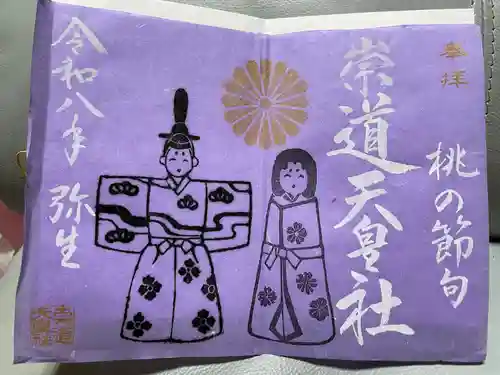 奉拝
桃の節句
崇道天皇社
令和八年 弥生